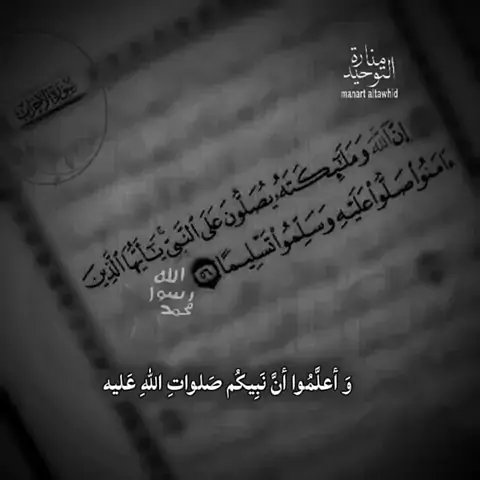 منارة
التوحيد
manart altawhid
سورة الأحزاب
إِنَّ ٱللَّهَ وَمَلَٰٓئِكَتَهُۥ يُصَلُّونَ عَلَى ٱلنَّبِىِّ يَٰٓأَيُّهَا ٱلَّذِينَ
ءَامَنُوا۟ صَلُّوا۟ عَلَيْهِ وَسَلِّمُوا۟ تَسْلِيمًا ٥٦
الله
رسول
محمد
وَ أعلَّمُوا أنَّ نَبِيكُم صَلواتِ اللهِ عَليه